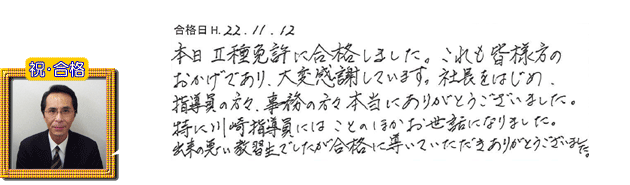 合格日H.22.11.12
祝・合格
本日Ⅱ種免許に合格しました。これも皆様方の
おかげであり、大変感謝しています。社長をはじめ、
指導員の方々、事務の方々本当にありがとうございました。
特に川崎指導員にはことのほかお世話になりました。
出来の悪い教習生でしたが合格に導いていただきありがとうございました。